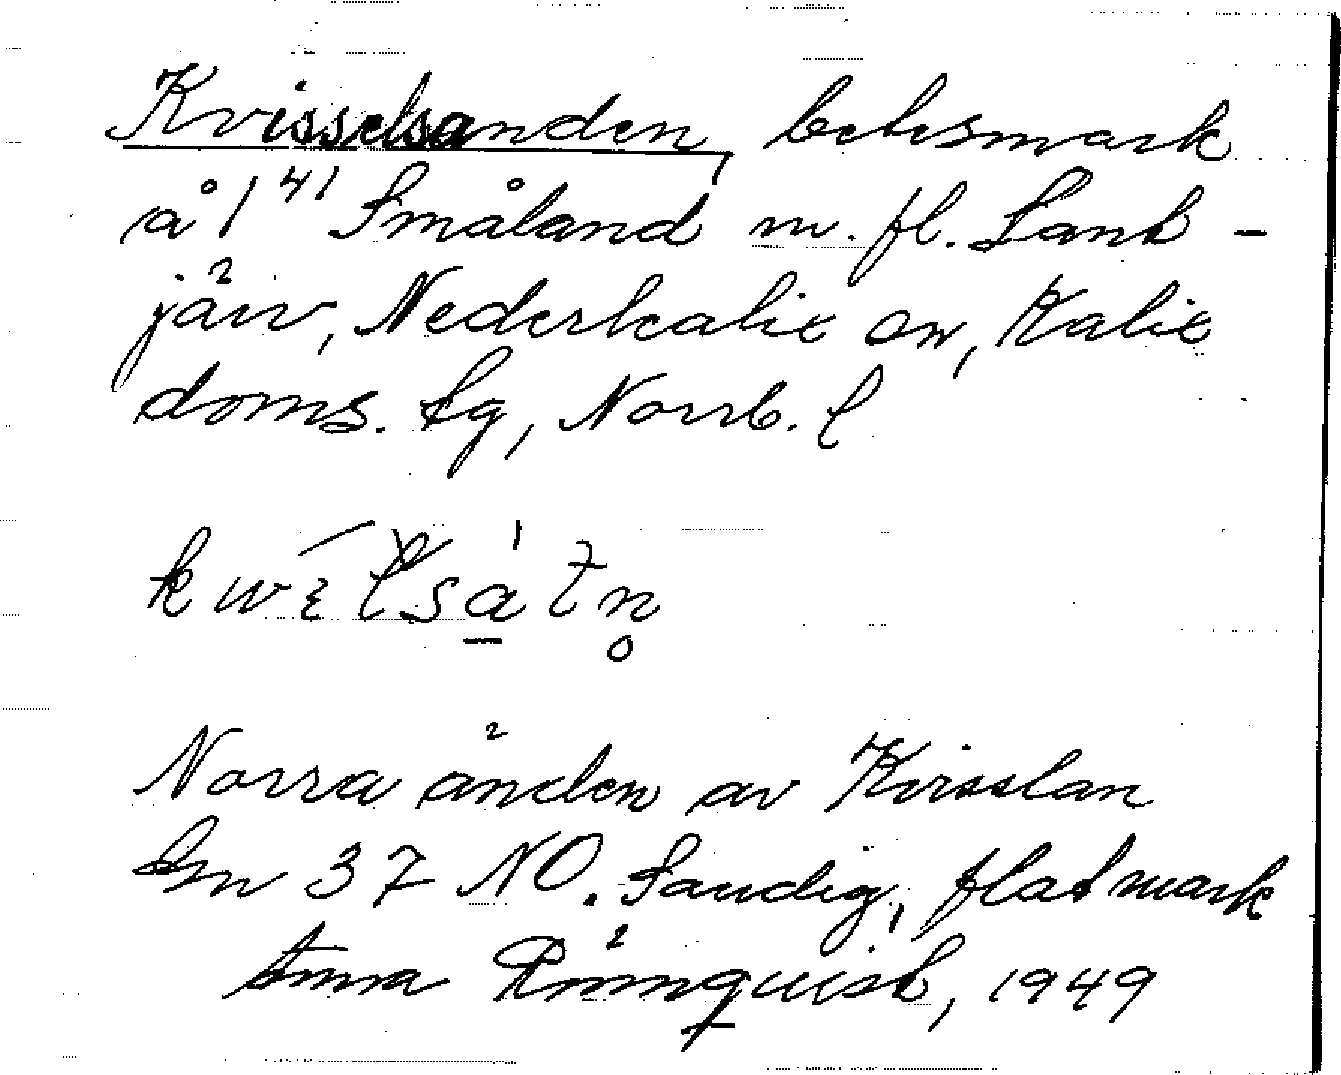 Kvisselsanden, betesmark
å 1⁴¹ Småland m. fl. Lant-
järv, Nederkalix sn, Kalix
doms. lg, Norrb. l
Norra änden av Kvisslan
Em 37 NO. Sandig, flat mark
Anna Rönnquist, 1949